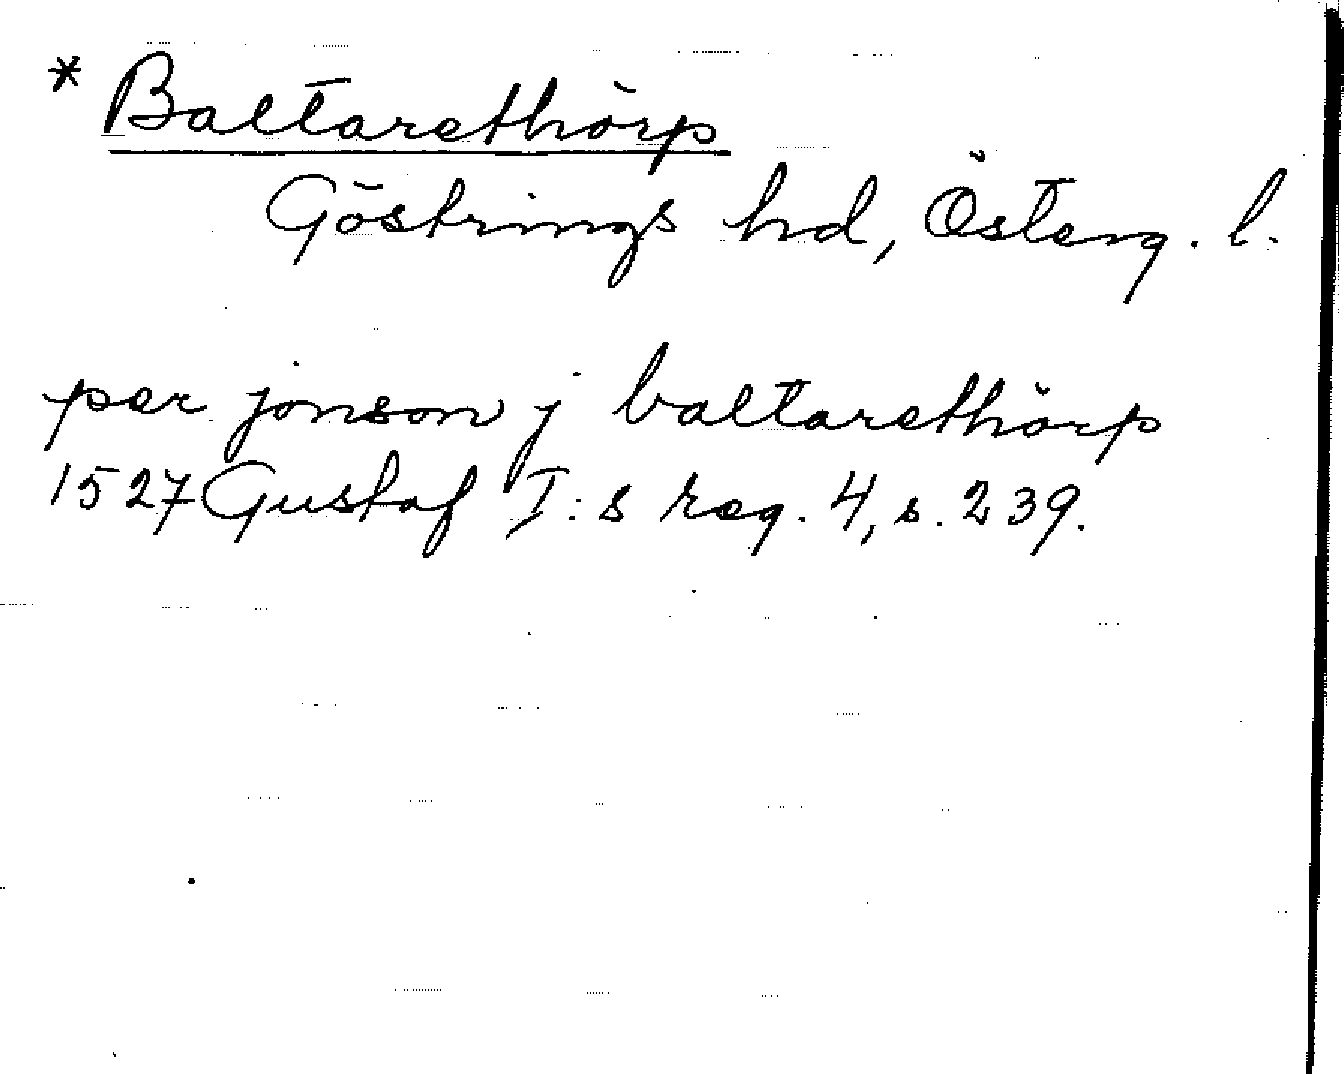 * Baltarethörp
Göstrings hd, Österg. l.
per jönson j baltarethörp
1527 Gustaf I:s reg. 4, s. 239.